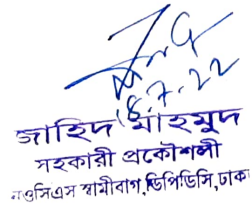 18.7.22
জাহিদ মাহমুদ
সহকারী প্রকৌশলী
নওসিএস স্বামীবাগ, ডিপিডিসি, ঢাকা